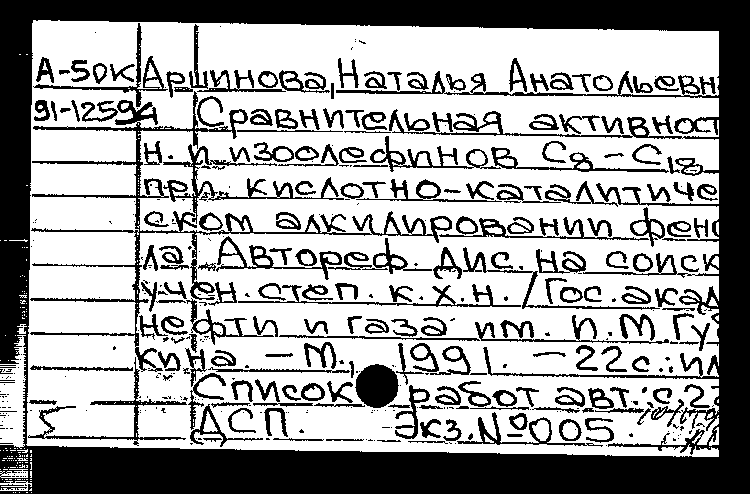 А-50К Аршинова, Наталья Анатольевн
91-12594 Сравнительная активност
н. и изоолефинов C8-C18
при кислотно-каталитиче
ском алкилировании фено
ла: Автореф. дис. на соиск
учен. степ. к.х.н. / Гос. акад
нефти и газа им. И.М. Гу
кина. - М., 1991. - 22с.: ил
Список работ авт.: с. 2
5 ДСП. Экз. №005.